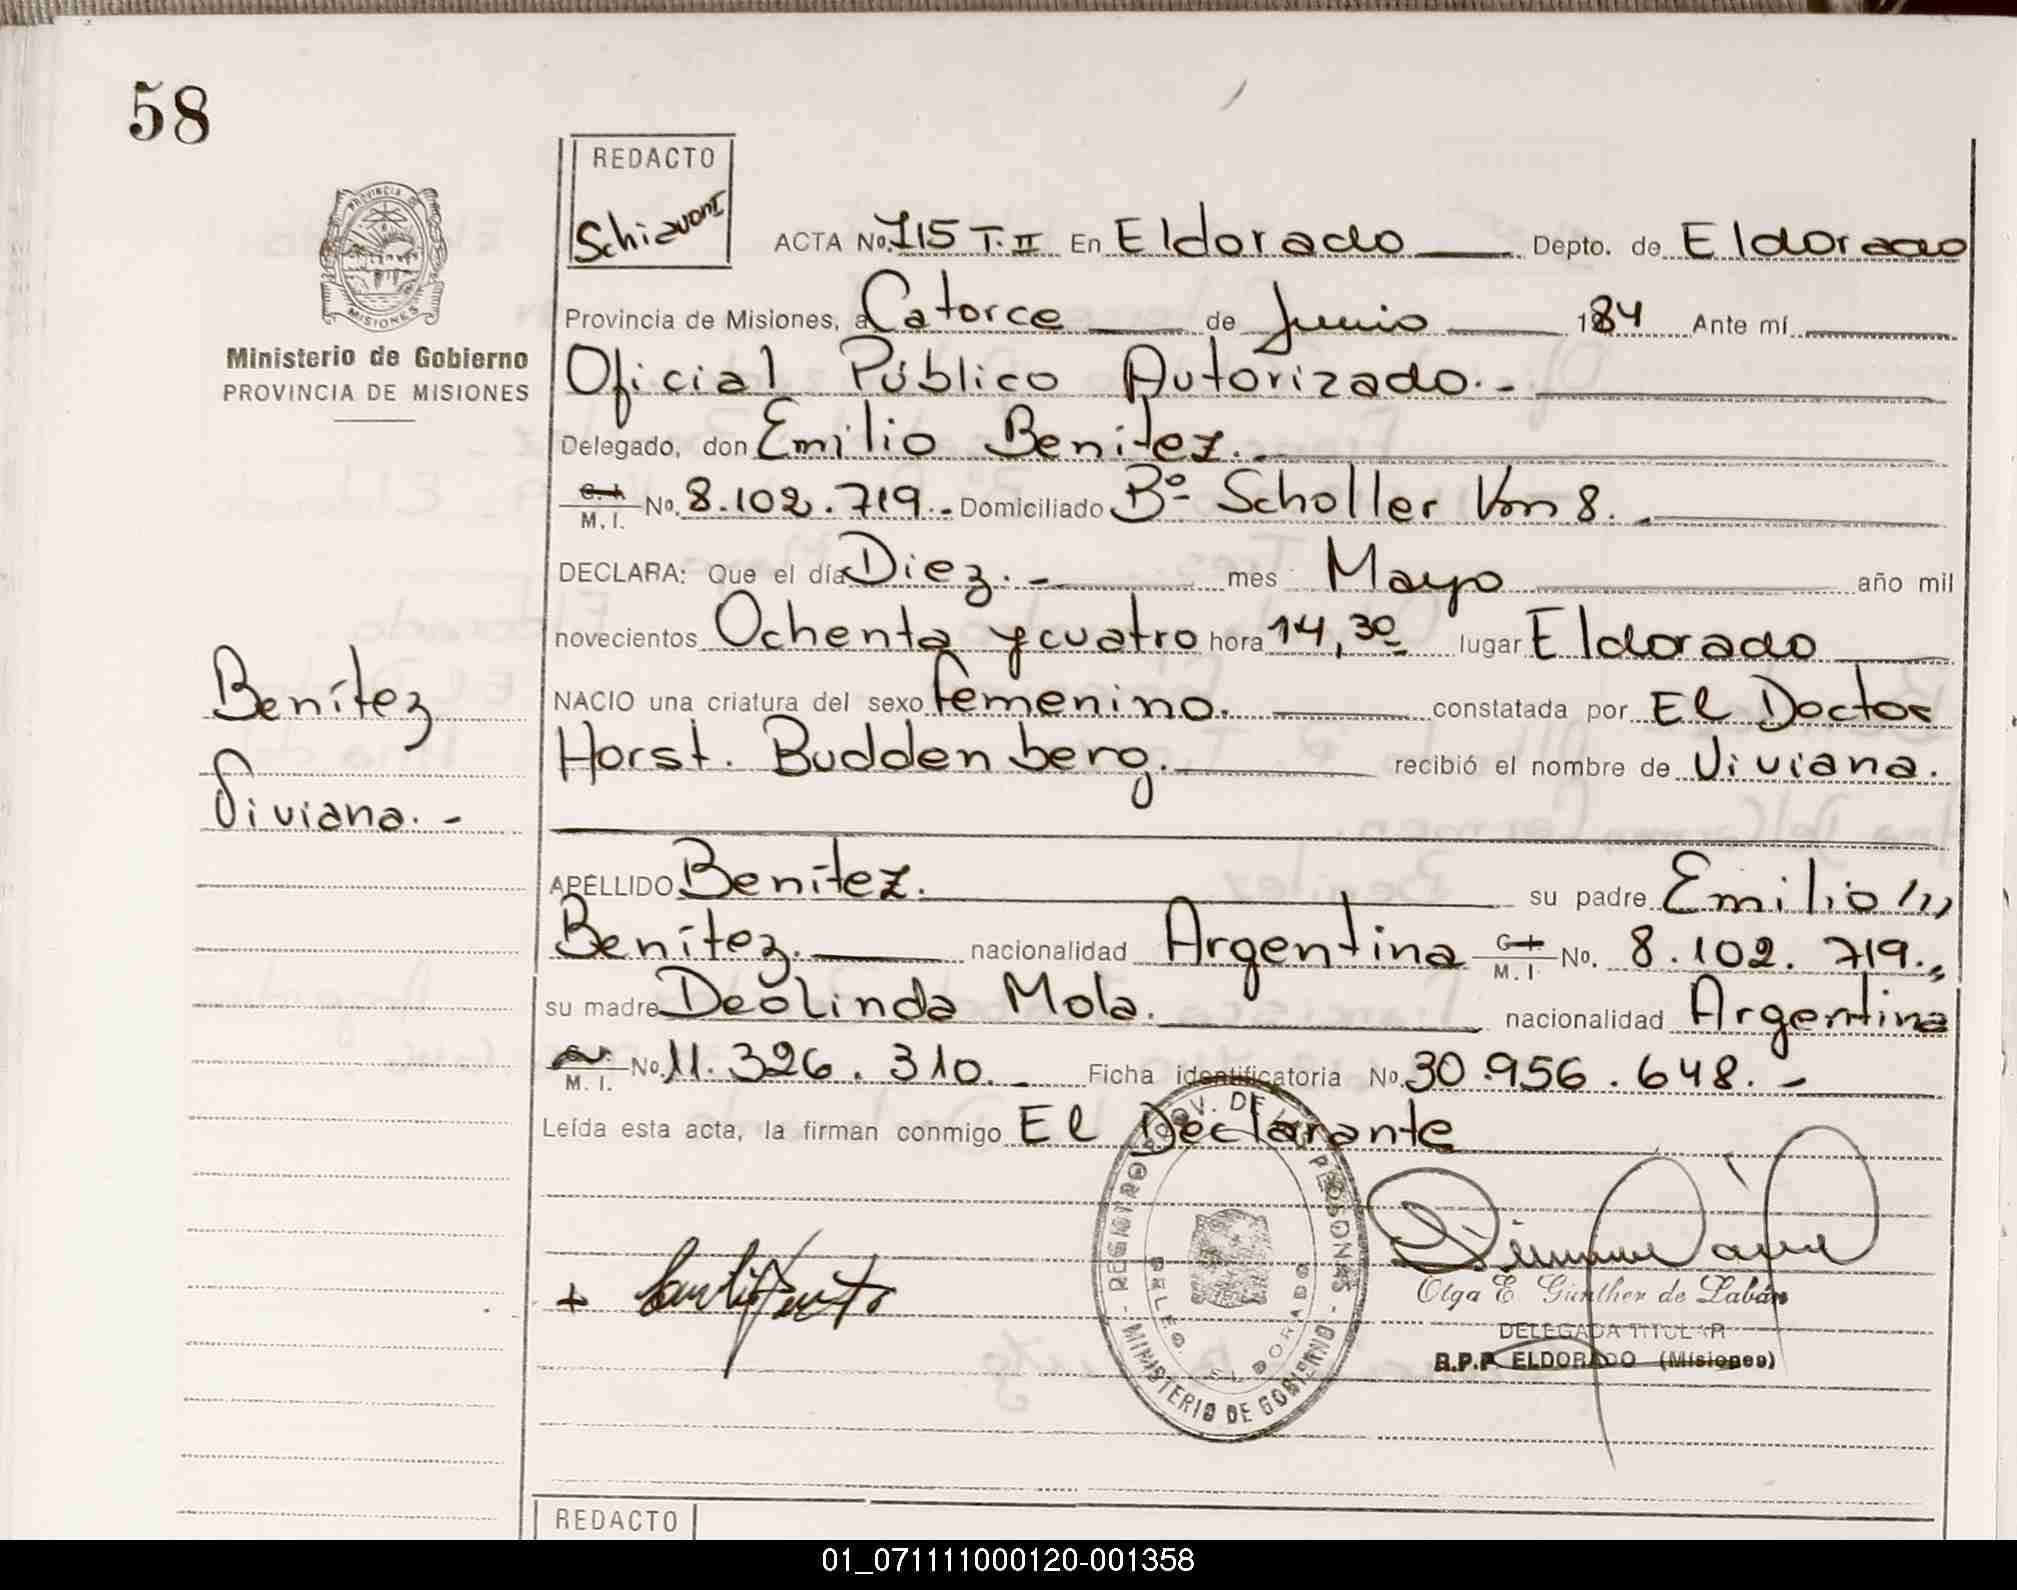 58
REDACTO
Schiavoni
ACTA No. 715 T. II En Eldorado Depto. de Eldorado
PROVINCIA DE MISIONES
Provincia de Misiones, a Catorce de Junio 184 Ante mí
Ministerio de Gobierno
PROVINCIA DE MISIONES
Oficial Público Autorizado.-
Delegado, don Emilio Benitez.
M. I. No. 8.102.719.- Domiciliado Bº Scholler Km 8.
DECLARA: Que el día Diez.- mes Mayo año mil
novecientos Ochenta y cuatro hora 14,30 lugar Eldorado
Benítez
NACIO una criatura del sexo femenino. constatada por El Doctor
Horst. Buddenberg. recibió el nombre de Viviana.
Viviana.-
APELLIDO Benítez. su padre Emilio
Benítez. nacionalidad Argentina M. I. No. 8.102.719.,
su madre Deolinda Mola. nacionalidad Argentina
M. I. No. 11.326.310.- Ficha identificatoria No. 30.956.648.-
Leída esta acta, la firman conmigo El Declarante
REGISTRO PROV. DE LAS PERSONAS - MINISTERIO DE GOBIERNO -
DELEG. ELDORADO
Olga E. Günther de Labán
DELEGADA TITULAR
R.P.P ELDORADO (Misiones)
REDACTO
01_071111000120-001358